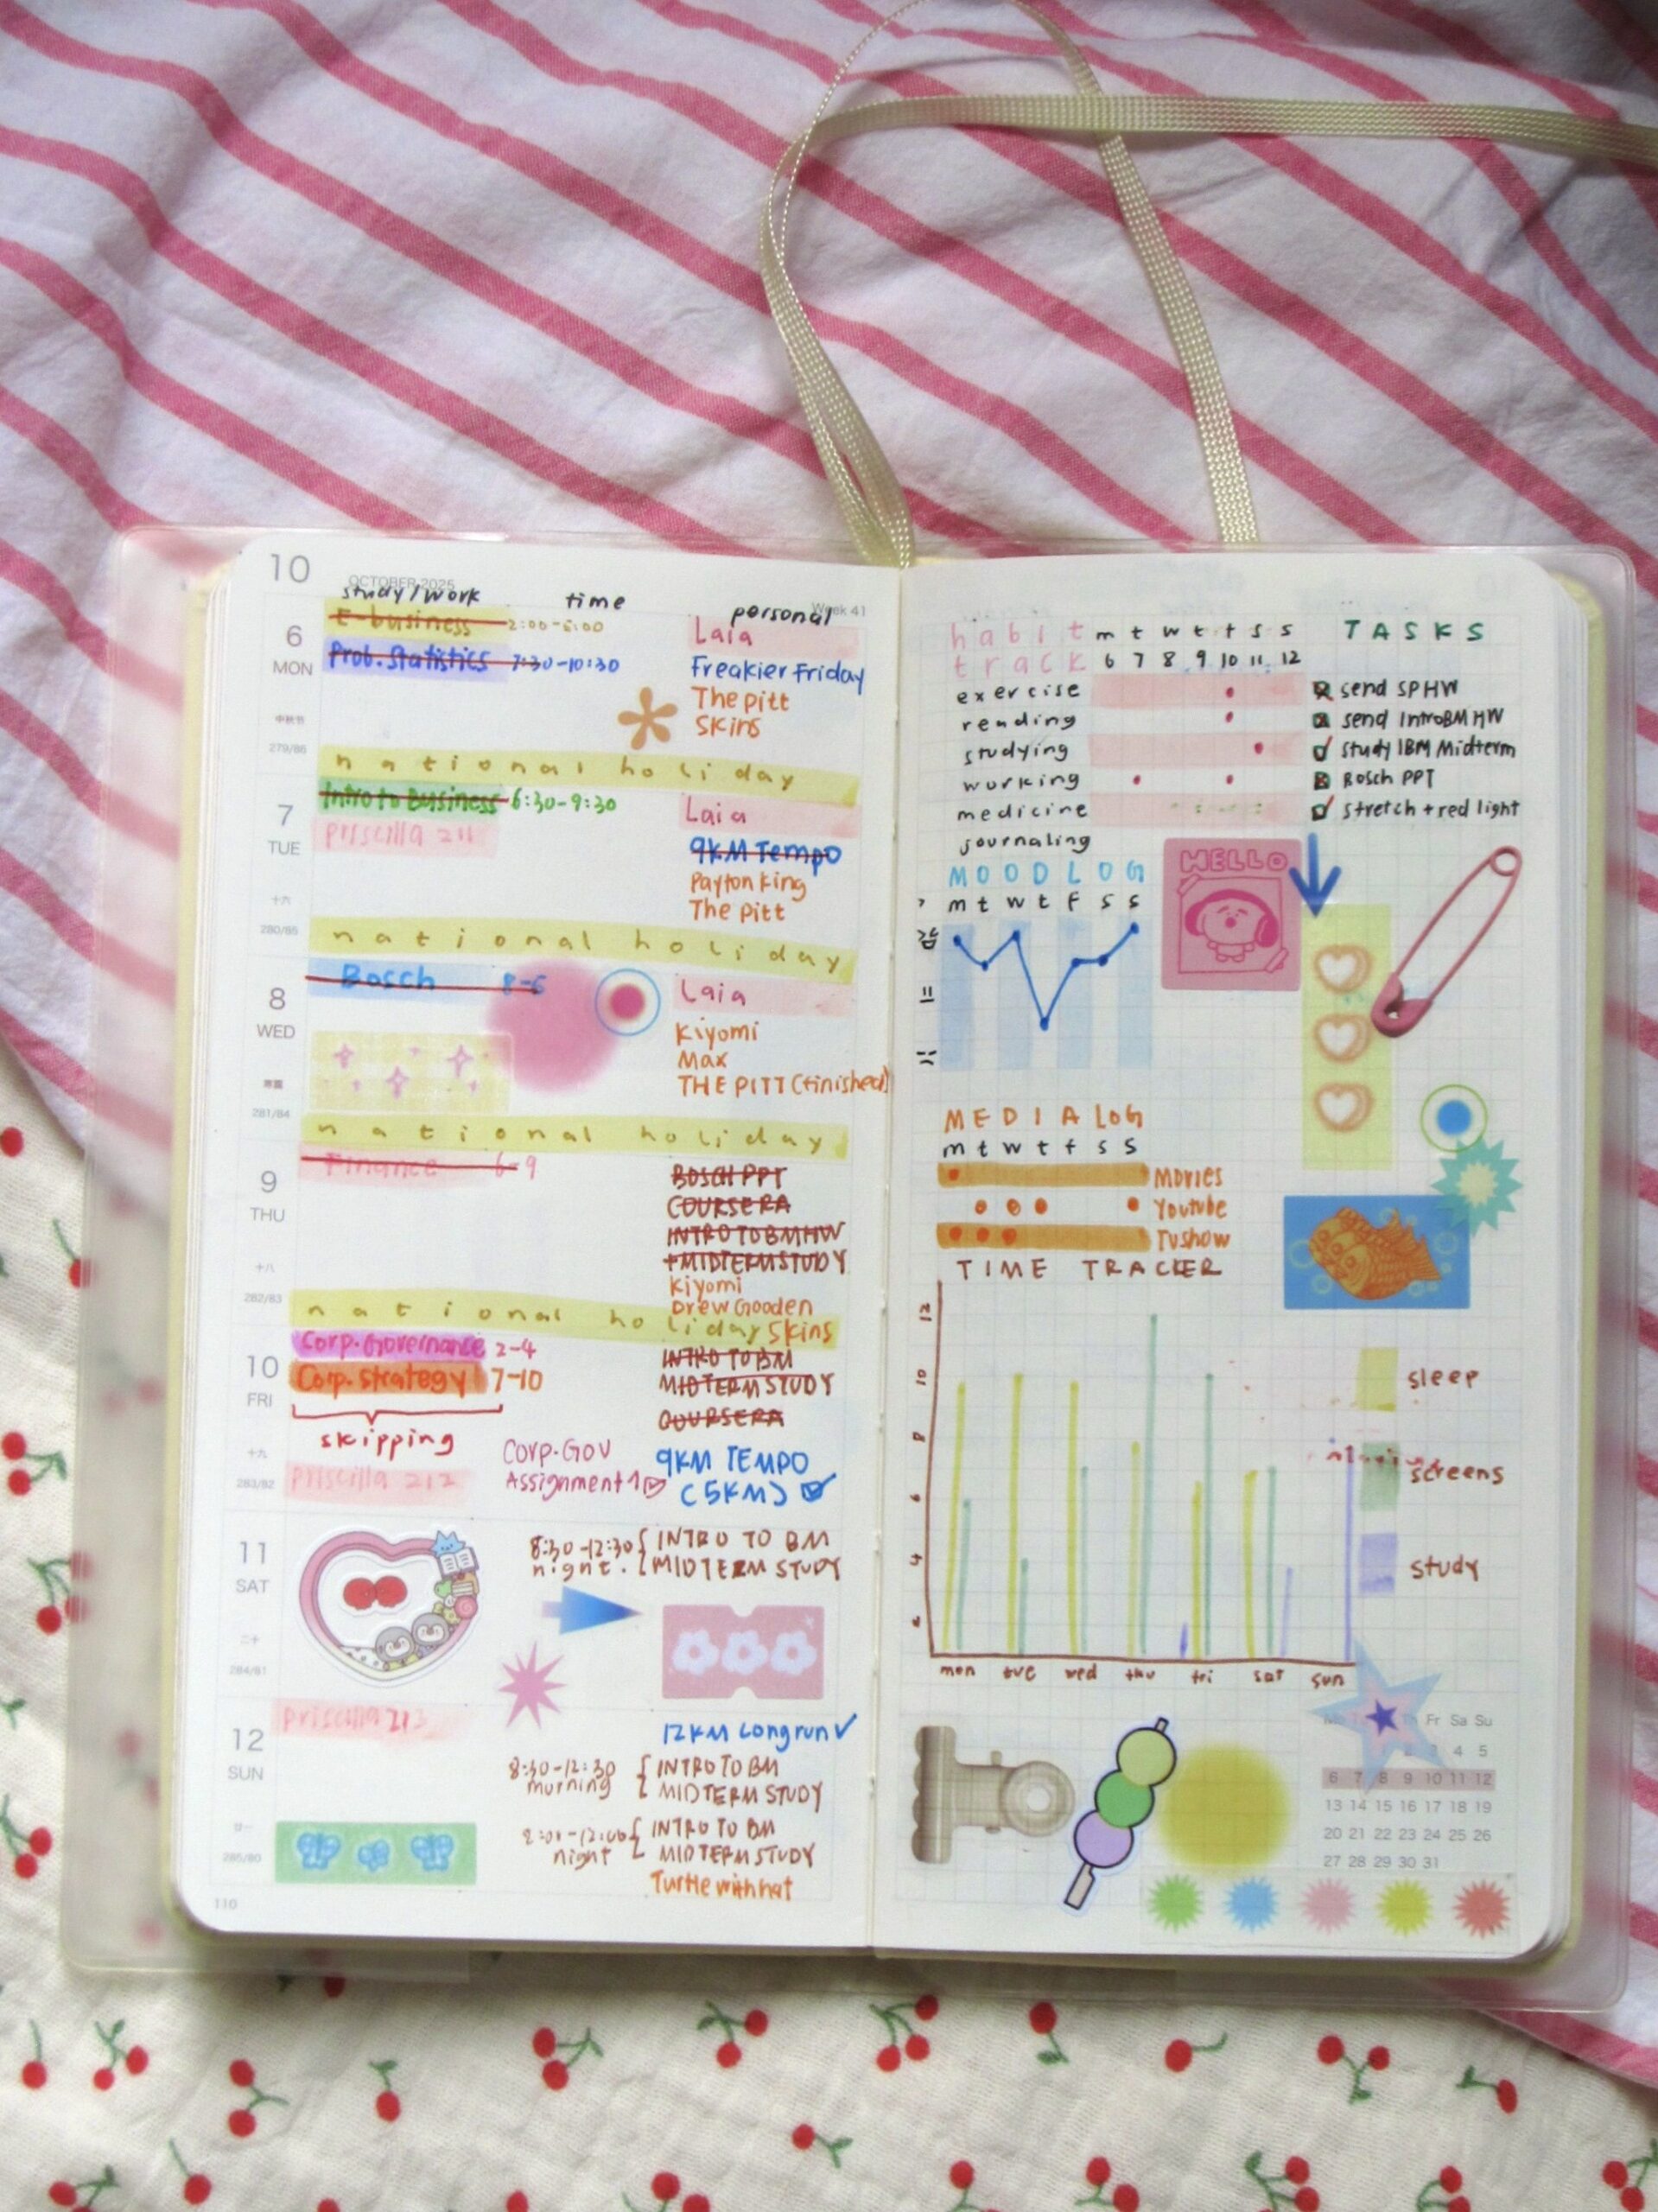 10
OCTOBER 2025
Week 41
study/work time personal
6
MON
中秋节
279/86
E-business 2:00-5:00
Prob. Statistics 7:30-10:30
Laia
Freakier Friday
The pitt
Skins
national holiday
7
TUE
十六
280/85
Intro to Business 6:30-9:30
Priscilla 211
Laia
9KM Tempo
Payton King
The pitt
national holiday
8
WED
寒露
281/84
Bosch 8-6
Laia
Kiyomi
Max
THE PITT (finished)
national holiday
9
THU
十八
282/83
Finance 6-9
BOSCH PPT
COURSERA
INTRO TO BM HW
+ MIDTERM STUDY
Kiyomi
Drew Gooden
Skins
national holiday
10
FRI
十九
283/82
Corp. Governance 2-4
Corp. Strategy 7-10
skipping
Priscilla 212
INTRO TO BM
MIDTERM STUDY
COURSERA
Corp. Gov
Assignment 1
9KM TEMPO
(5KM)
11
SAT
二十
284/81
8:30-12:30
night.
INTRO TO BM
MIDTERM STUDY
12
SUN
285/80
Priscilla 213
12KM Long run ✓
8:30-12:30
morning
INTRO TO BM
MIDTERM STUDY
night
INTRO TO BM
MIDTERM STUDY
Turtle with hat
110
habit m t w t f s s
track 6 7 8 9 10 11 12
exercise
reading
studying
working
medicine
journaling
TASKS
send SPHW
send IntroBM HW
study IBM Midterm
Bosch PPT
Stretch + red light
MOOD LOG
m t w t f s s
HELLO
MEDIA LOG
m t w t f s s
Movies
Youtube
TV show
TIME TRACKER
12
10
8
6
4
2
mon tue wed thu fri sat sun
sleep
screens
study
Mo Th Fr Sa Su
2 3 4 5
6 7 8 9 10 11 12
13 14 15 16 17 18 19
20 21 22 23 24 25 26
27 28 29 30 31